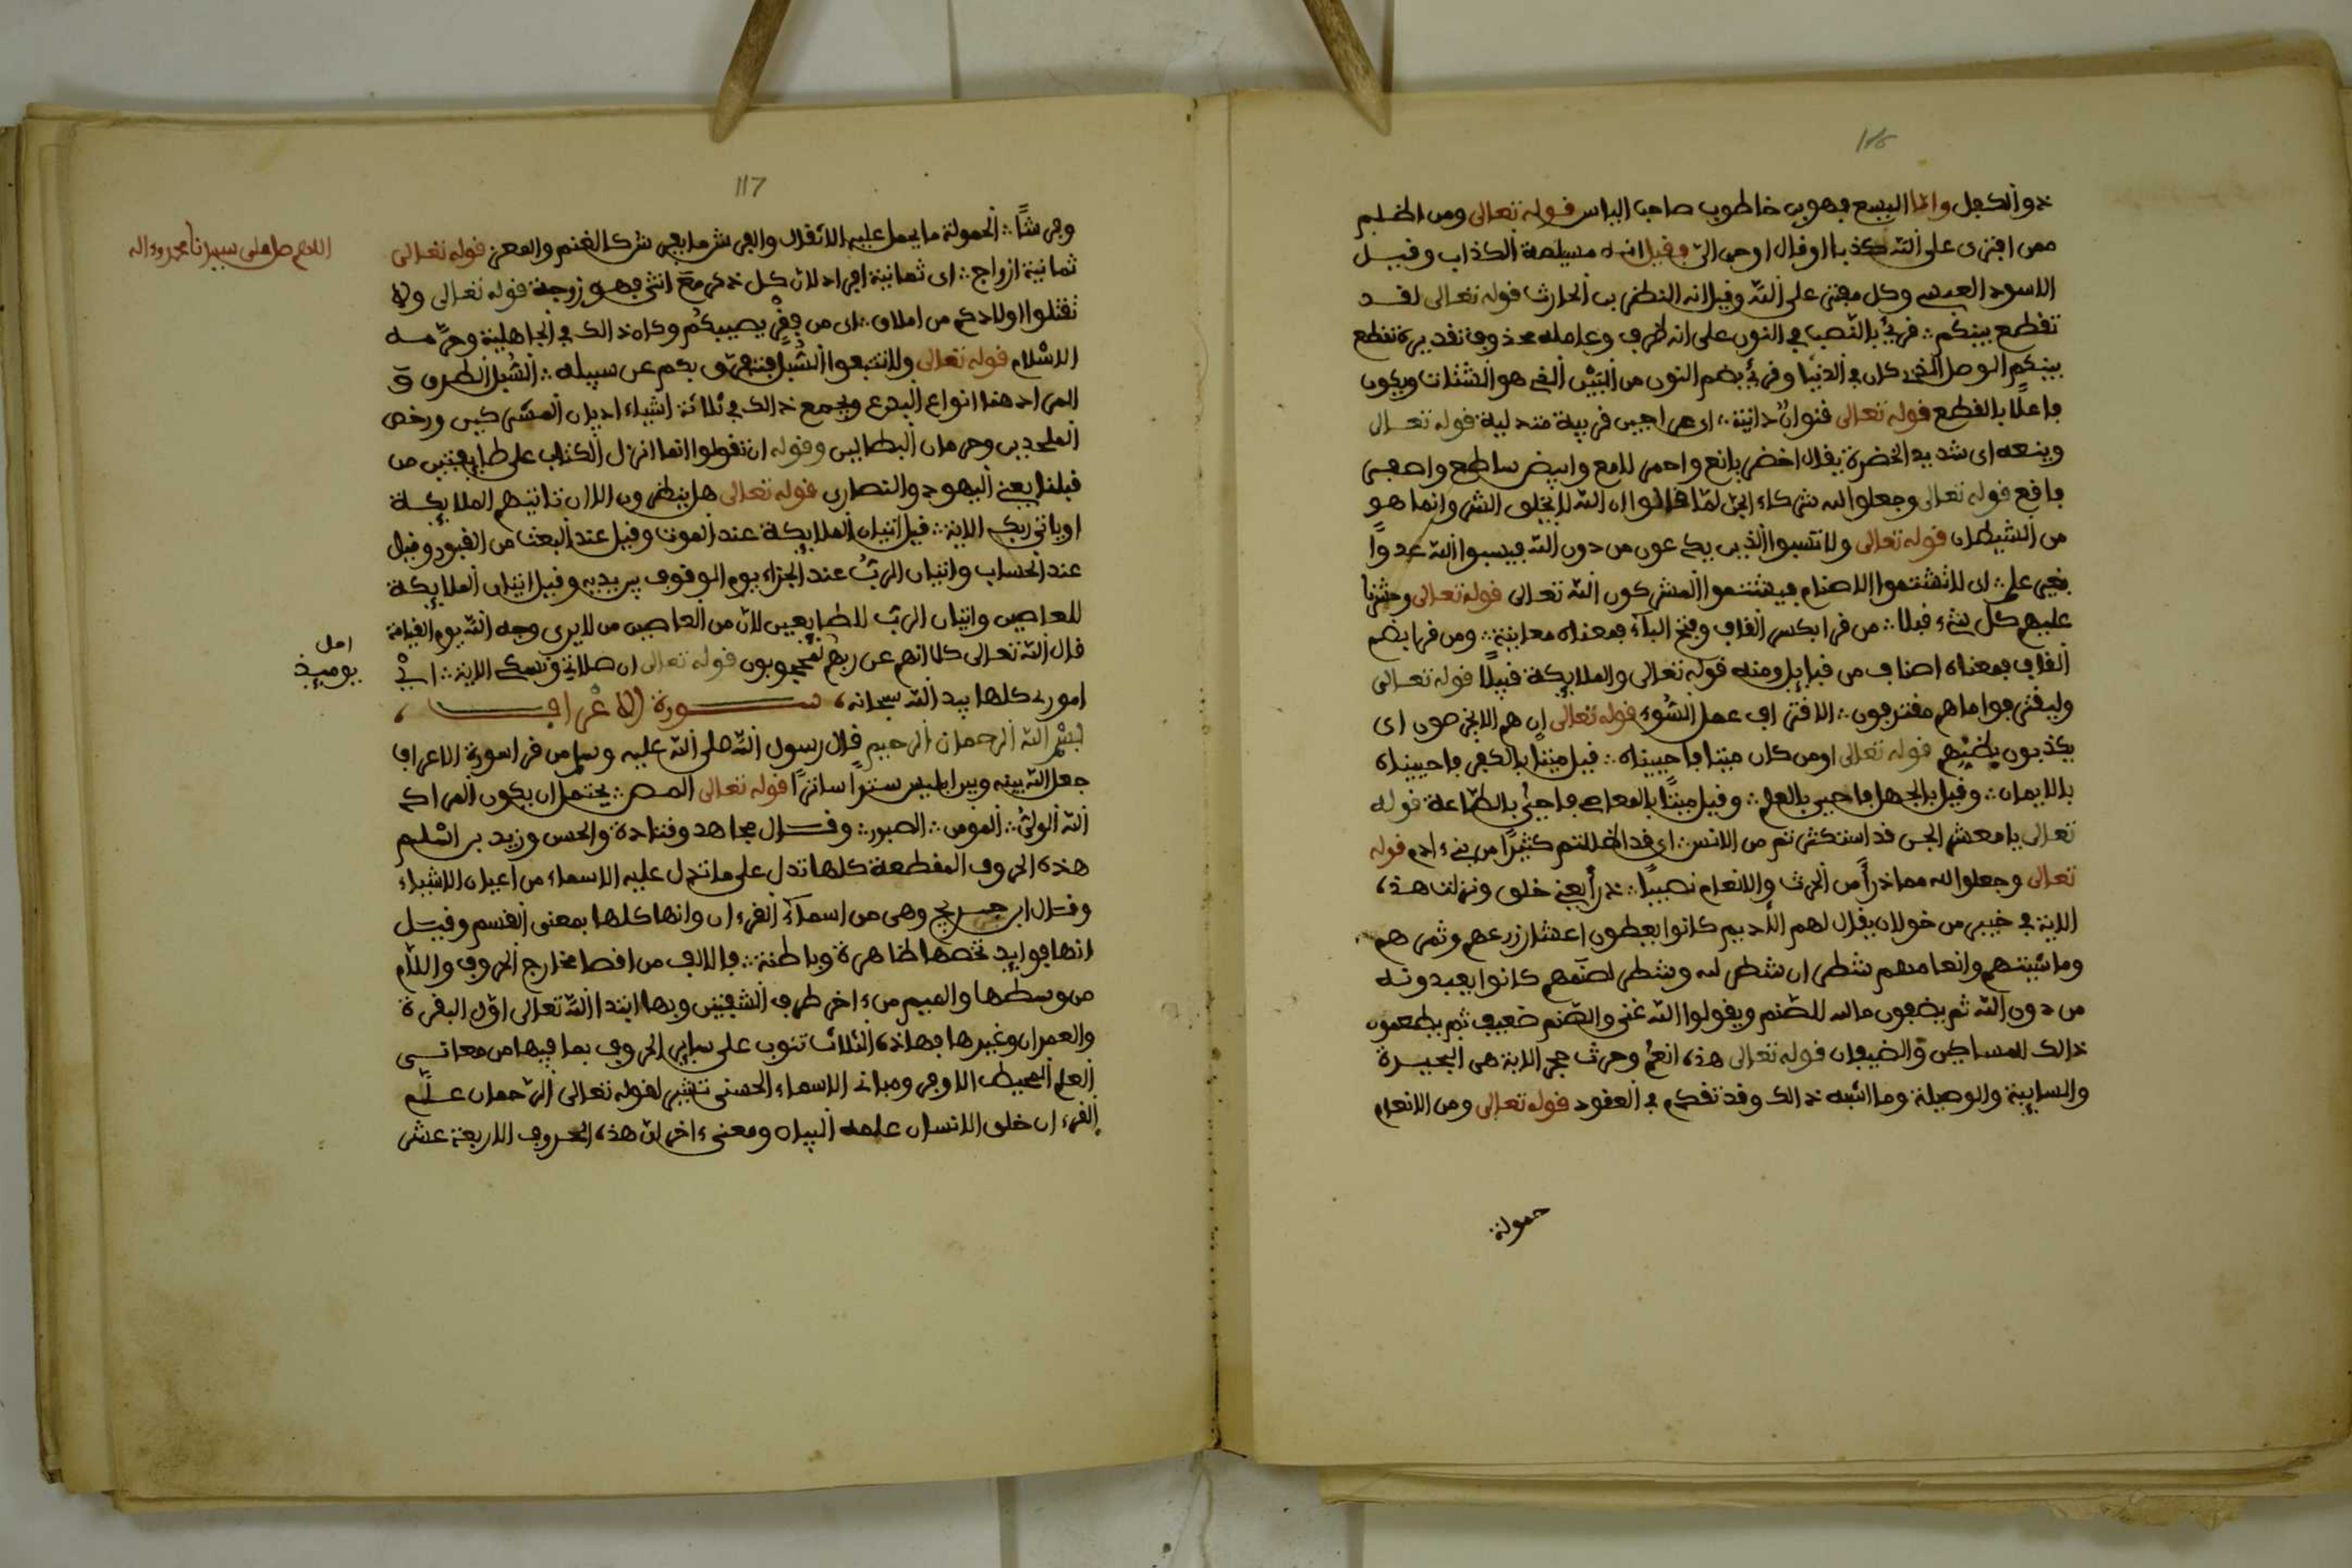 ذو الكفل واما اليسع فهو بن خاطوب صاحب الباس قوله تعالى ومن اظلم
ممن افترى على الله كذبا او قال اوحي الي فقيل انه مسيلمة الكذاب وقيل
الاسود العنسي وكل مفتر على الله وقيل انه النظر بن الحارث قوله تعالى لقد
تقطع بينكم ∴ قرئ بالنصب في النون على انه ظرف وعامله محذوف تقديره تقطع
بينكم الوصل الذي كان في الدنيا وقرئ بضم النون من البين الذي هو الشتات ويكون
فاعلا بالقطع قوله تعالى قنوان دانية ∴ اي عراجين قريبة متدلية قوله تعالى
وينعه اي شديد الخضرة يقال اخضر يانع واحمر لامع وابيض ساطع واصفر
فاقع قوله تعالى وجعلوا لله شركاء الجن لما قالوا ان الله لا يخلق الشر وانما هو
من الشيطان قوله تعالى ولا تسبوا الذين يدعون من دون الله فيسبوا الله عدوا
بغير علم ∴ اي لا تشتموا الاصنام فيشتموا المشركون الله تعالى قوله تعالى وحشرنا
عليهم كل شيء قبلا ∴ من قرا بكسر القاف وفتح الباء فمعناه معاينة ∴ ومن قرا بضم
القاف فمعناه اصناف من قبايل ومنه قوله تعالى والملايكة قبيلا قوله تعالى
وليقترفوا ما هم مقترفون ∴ الاقتراف عمل السوء قوله تعالى ان هم الا يخرصون اي
يكذبون بظنهم قوله تعالى اومن كان ميتا فاحييناه ∴ قيل ميتا بالكفر فاحييناه
بالايمان ∴ وقيل بالجهل فاحيي بالعلم ∴ وقيل ميتا بالمعاصي فاحيي بالطاعة قوله
تعالى يا معشر الجن قد استكثرتم من الانس ∴ اي قد اضللتم كثيرا من بني ءادم قوله
تعالى وجعلوا لله مما ذرأ من الحرث والانعام نصيبا ∴ ذرأ يعني خلق ونزلت هذه
الاية في خيبر من خولان يقال لهم الاديم كانوا يعطون اعشار زرعهم وثمرهم
وماشيتهم وانعامهم شطران شطر لله وشطر لصنمهم كانوا يعبدونه
من دون الله ثم يضعون مالله للصنم ويقولوا الله غني والصنم ضعيف ثم يطعمون
ذالك للمساكين والضيفان قوله تعالى هذه انعم وحرث حجر الاية هي البحيرة
والسايبة والوصيلة وما اشبه ذالك وقد تقدم في العقود قوله تعالى ومن الانعام
حمولة
117
وفرشا ∴ الحمولة ما يحمل عليه الاثقال والفرش ما يفرش كالغنم والمعز قوله تعالى
اللهم صل على سيدنا محمد وءاله
ثمانية ازواج ∴ اي ثمانية افراد لان كل ذكر مع انثى فهو زوجة قوله تعالى ولا
تقتلوا اولادكم من املاق ∴ اي من فقر يصيبكم وكان ذالك في الجاهلية وحرمه
الاسلام قوله تعالى ولا تتبعوا السبل فتفرق بكم عن سبيله ∴ السبل الطرق و
المراد هنا انواع البدع ويجمع ذالك في ثلاثة اشياء اديان المشركين ورخص
الملحدين وحرمان البطالين وقوله ان تقولوا انما انزل الكتاب على طايفتين من
قبلنا يعني اليهود والنصارى قوله تعالى هل ينظرون الا ان تاتيهم الملايكة
او ياتي ربك الاية ∴ قيل اتيان الملايكة عند الموت وقيل عند البعث من القبور وقيل
عند الحساب واتيان الرب عند الجزاء يوم الوقوف بين يديه وقيل اتيان الملايكة
للعاصين واتيان الرب للطايعين لان من العاصين من لا يرى وجه الله يوم القيامة
قال الله تعالى كلا انهم عن ربهم لمحجوبون قوله تعالى ان صلاتي ونسكي الاية ∴ اي في
اصل
يوميذ
اموري كلها بيد الله سبحانه سورة الاعراف
بسم الله الرحمان الرحيم قال رسول الله صلى الله عليه وسلم من قرا سورة الاعراف
جعل الله بينه وبين ابليس سترا ساترا قوله تعالى المص ∴ يحتمل ان يكون المراد
الله الولي ∴ المومن ∴ الصبور ∴ وقال مجاهد وقتادة والحسن وزيد بن اسلم
هذه الحروف المقطعة كلها تدل على ما تدل عليه الاسماء من اعيان الاشياء
وقال ابن جريج وهي من اسماء القرءان وانها كلها بمعنى القسم وقيل
انها فوايد تخصها ظاهرة وباطنة ∴ فالالف من اقصا مخارج الحروف واللام
من وسطها والميم من ءاخر طرف الشفتين وبها ابتدا الله تعالى اول البقرة
والعمران وغيرها فهاذه الثلاث تنوب على ساير الحروف بما فيها من معاني
العلم المحيط الاوفى ومباني الاسماء الحسنى تشير لقوله تعالى الرحمان علم
القرءان خلق الانسان علمه البيان ومعنى ءاخر لان هذه الحروف الاربعة عشر